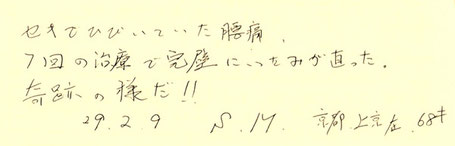 セキでひびいていた腰痛、
7回の治療で完璧にいたみが直った。
奇跡の様だ!!
29.2.9 S.M. 京都 上京区 68才